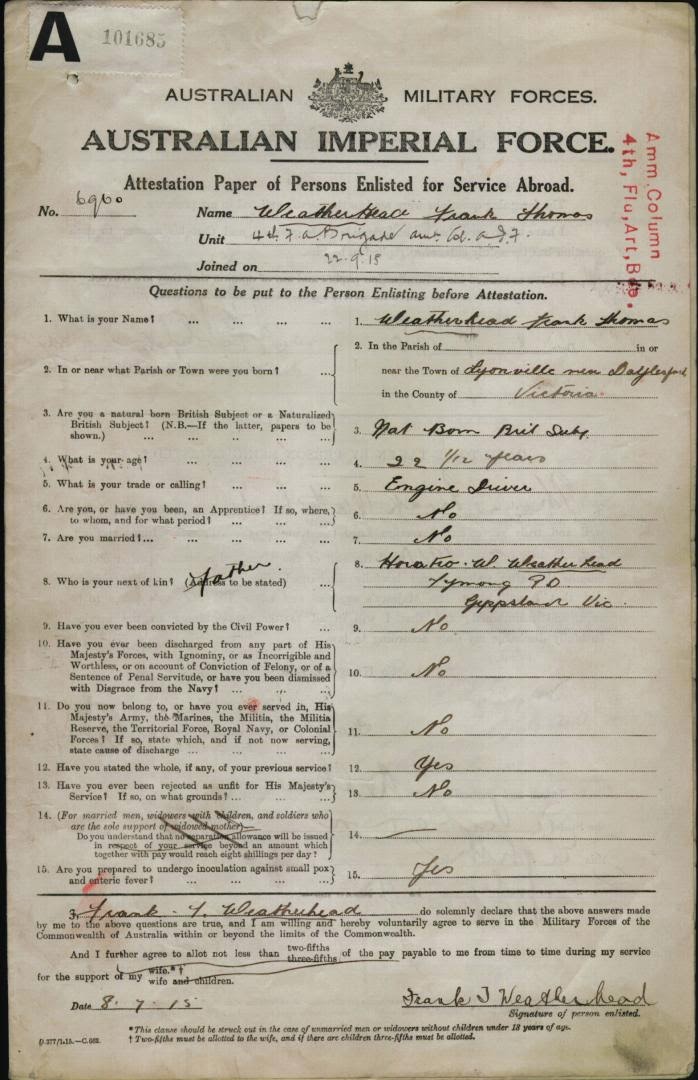 A 101685
AUSTRALIAN MILITARY FORCES.
AUSTRALIAN IMPERIAL FORCE.
Attestation Paper of Persons Enlisted for Service Abroad.
Amm. Column
4th, Flu, Art, Bde.
No. 6960 Name Weatherhead Frank Thomas
Unit 4th F. A. Brigade Am. Col. A.I.F.
Joined on 22.9.15
Questions to be put to the Person Enlisting before Attestation.
1. What is your Name? ... ... ... ... 1. Weatherhead Frank Thomas
2. In or near what Parish or Town were you born? ... 2. In the Parish of in or
near the Town of Lyonville near Daylesford
in the County of Victoria
3. Are you a natural born British Subject or a Naturalized
British Subject? (N.B.—If the latter, papers to be
shown.) ... ... ... ... 3. Nat Born Brit Subj
4. What is your age? ... ... ... ... 4. 22 1/12 years
5. What is your trade or calling? ... ... ... 5. Engine Driver
6. Are you, or have you been, an Apprentice? If so, where,
to whom, and for what period? ... ... ... 6. No
7. Are you married?... ... ... ... 7. No
8. Who is your next of kin? (Address to be stated) ... father 8. Horatio. W. Weatherhead
P.O
Gippsland Vic.
9. Have you ever been convicted by the Civil Power? ... 9. No
10. Have you ever been discharged from any part of His
Majesty's Forces, with Ignominy, or as Incorrigible and
Worthless, or on account of Conviction of Felony, or of a
Sentence of Penal Servitude, or have you been dismissed
with Disgrace from the Navy? ... ... ... 10. No
11. Do you now belong to, or have you ever served in, His
Majesty's Army, the Marines, the Militia, the Militia
Reserve, the Territorial Force, Royal Navy, or Colonial
Forces? If so, state which, and if not now serving,
state cause of discharge ... ... ... 11. No
12. Have you stated the whole, if any, of your previous service? 12. Yes
13. Have you ever been rejected as unfit for His Majesty's
Service? If so, on what grounds? ... ... ... 13. No
14. (For married men, widowers with children, and soldiers who
are the sole support of widowed mother)—
Do you understand that no separation allowance will be issued
in respect of your service beyond an amount which
together with pay would reach eight shillings per day? 14. —
15. Are you prepared to undergo inoculation against small pox
and enteric fever? ... ... ... ... 15. Yes
I, Frank T Weatherhead do solemnly declare that the above answers made
by me to the above questions are true, and I am willing and hereby voluntarily agree to serve in the Military Forces of the
Commonwealth of Australia within or beyond the limits of the Commonwealth.
And I further agree to allot not less than two-fifths three-fifths of the pay payable to me from time to time during my service
for the support of my wife.*† wife and children.
Date 8. 7. 15 Frank T Weatherhead
Signature of person enlisted.
* This clause should be struck out in the case of unmarried men or widowers without children under 18 years of age.
D.377/1.15.—C.662. † Two-fifths must be allotted to the wife, and if there are children three-fifths must be allotted.